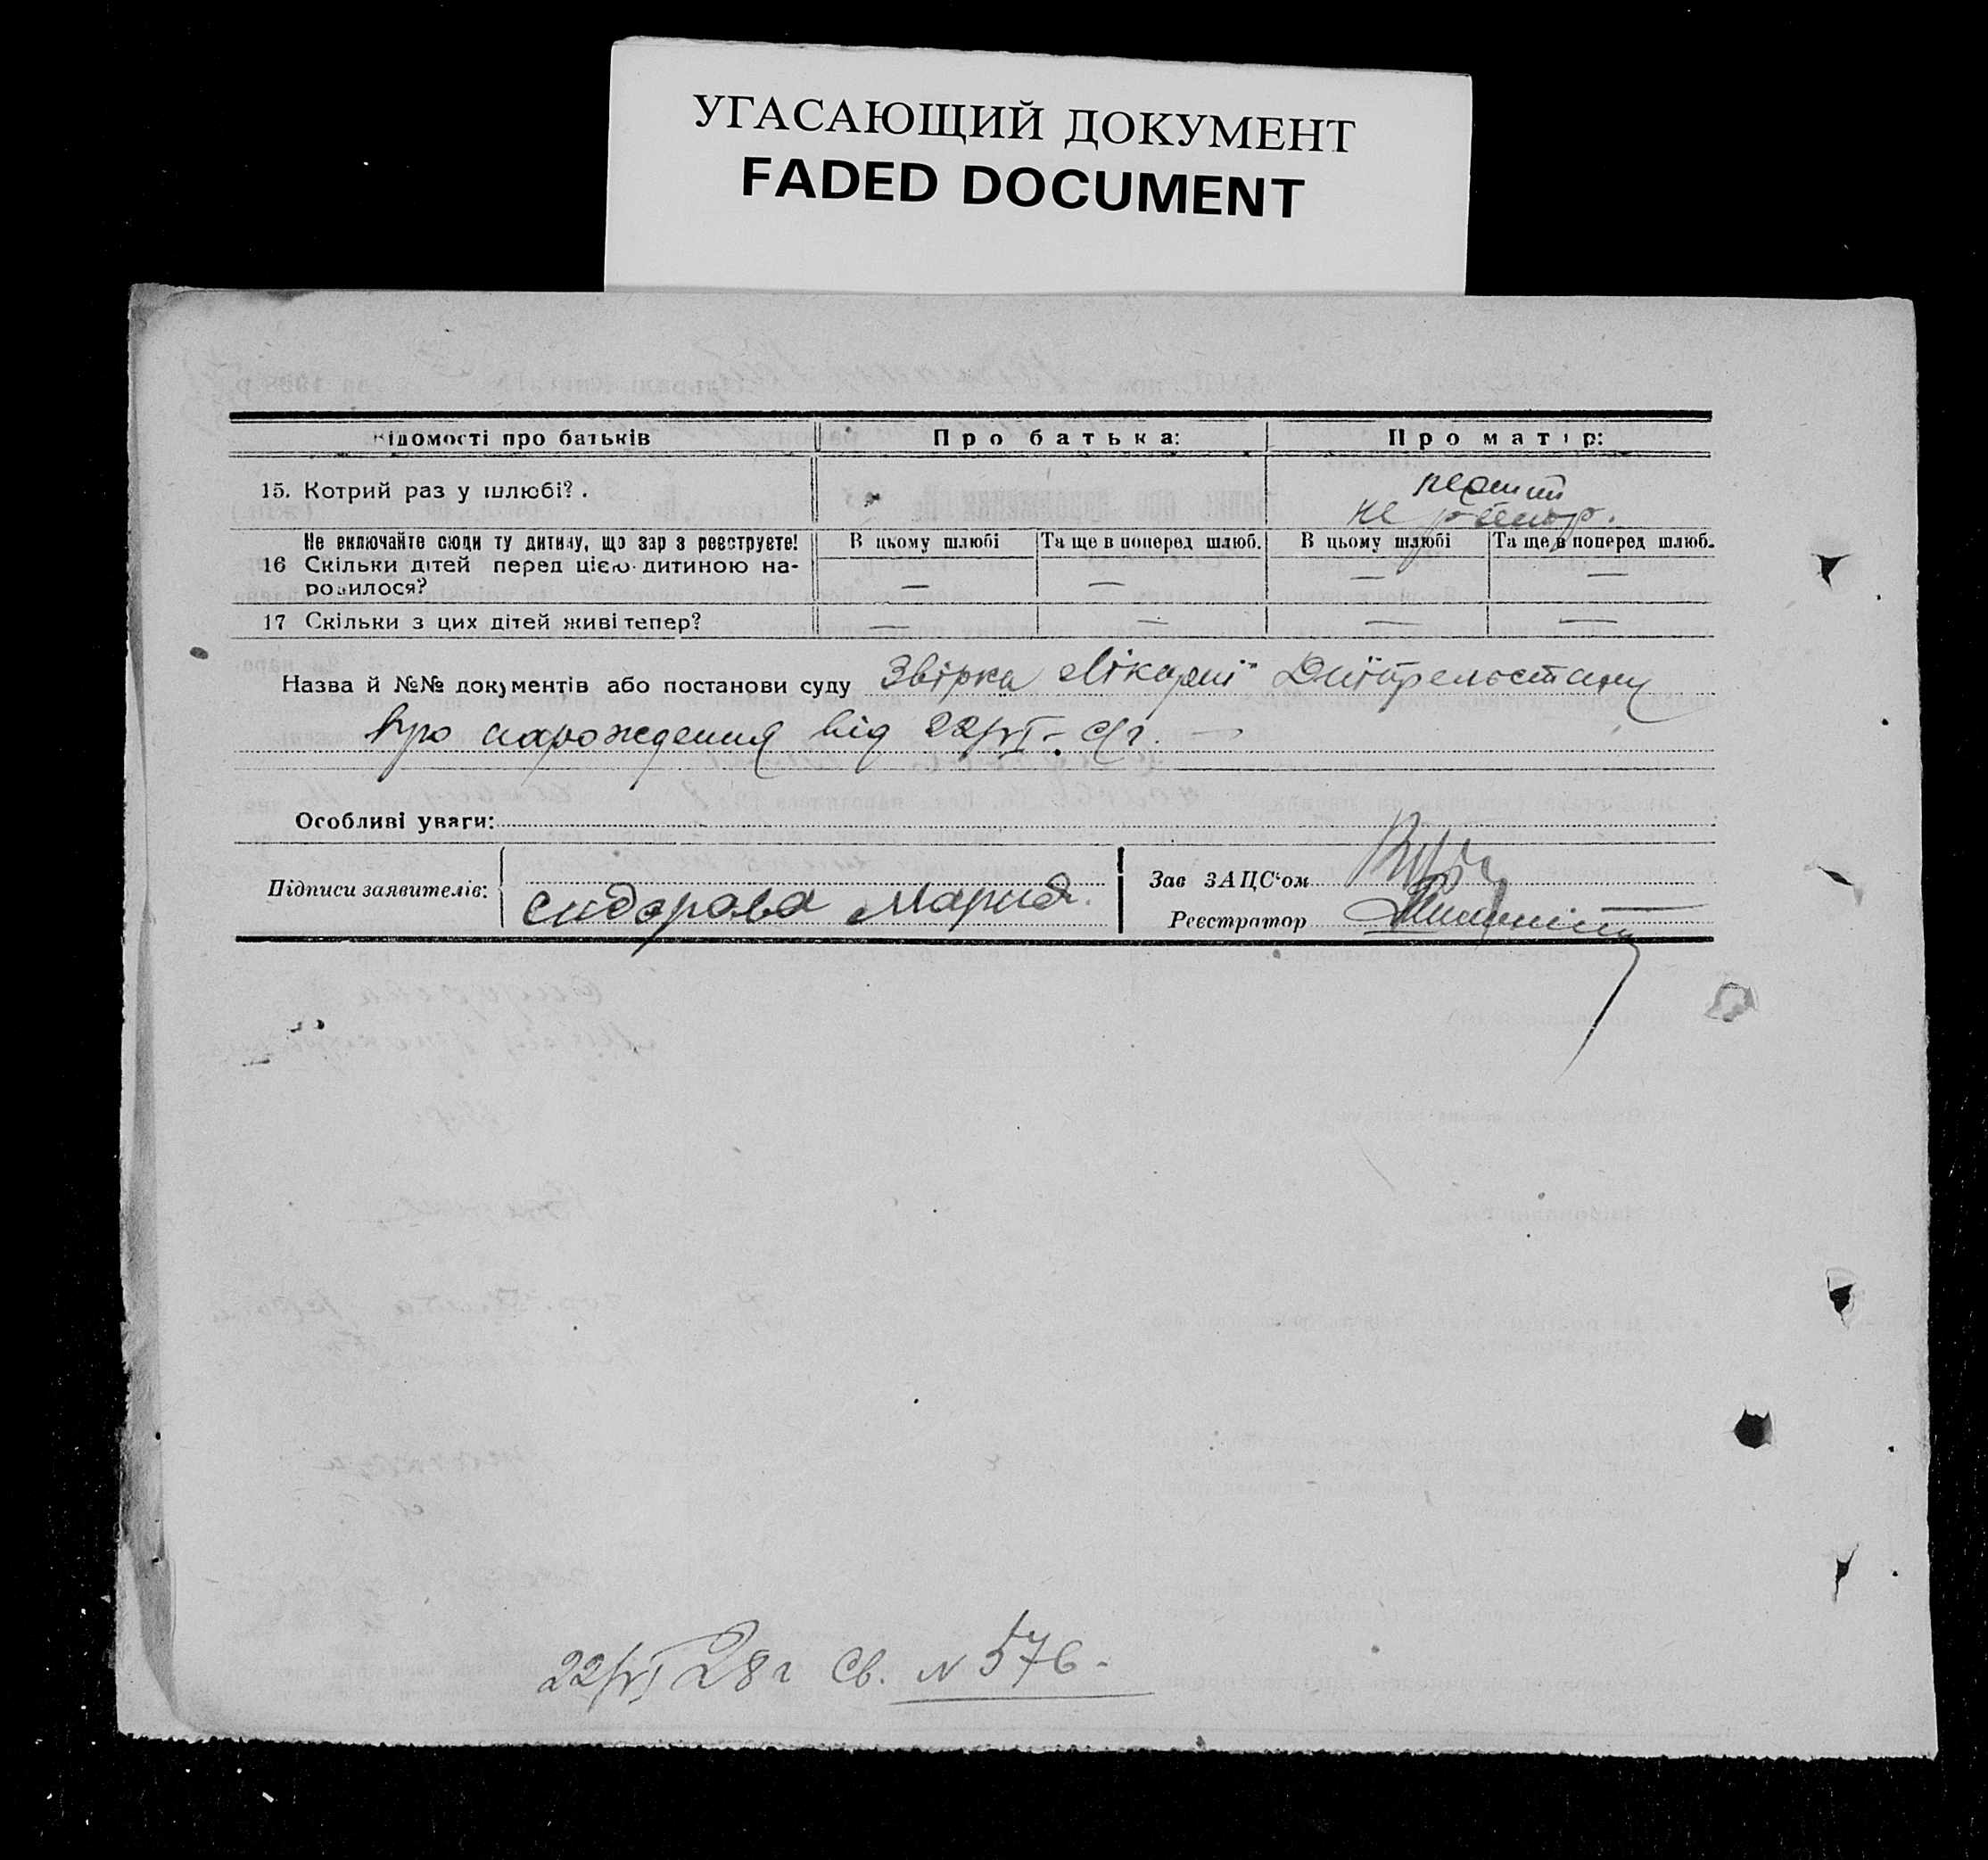 УГАСАЮЩИЙ ДОКУМЕНТ
FADED DOCUMENT
Відомості про батьків
Про батька:
Про матір:
15. Котрий раз у шлюбі?.
перший
не
Не включайте сюди ту дитину, що зар з реєструєте!
16 Скільки дітей перед цією дитиною на-
родилося?
В цьому шлюбі
Та ще в поперед шлюб.
В цьому шлюбі
Та ще в поперед шлюб.
— — — —
17 Скільки з цих дітей живі тепер?
— — — —
Назва й №№ документів або постанови суду Звірка Лікарні Дніпрельстану
про народження від 22/VI - с/г. —
Особливі уваги:
Підписи заявителів:
Сидорова Мария.
Зав ЗАЦС'ом
Реєстратор
22/VI 28 г Св. N 576-